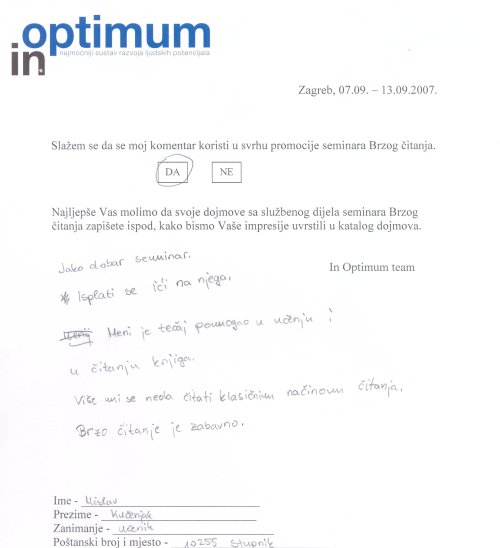 in optimum
najmoćniji sustav razvoja ljudskih potencijala
Zagreb, 07.09. – 13.09.2007.
Slažem se da se moj komentar koristi u svrhu promocije seminara Brzog čitanja.
DA NE
Najljepše Vas molimo da svoje dojmove sa službenog dijela seminara Brzog
čitanja zapišete ispod, kako bismo Vaše impresije uvrstili u katalog dojmova.
In Optimum team
Jako dobar seminar.
Isplati se ići na njega.
Meni je tečaj pomogao u učenju i
u čitanju knjiga.
Više mi se neda čitati klasičnim načinom čitanja.
Brzo čitanje je zabavno.
Ime - Mislav
Prezime - Kučenjak
Zanimanje - učenik
Poštanski broj i mjesto - 10255 Stupnik